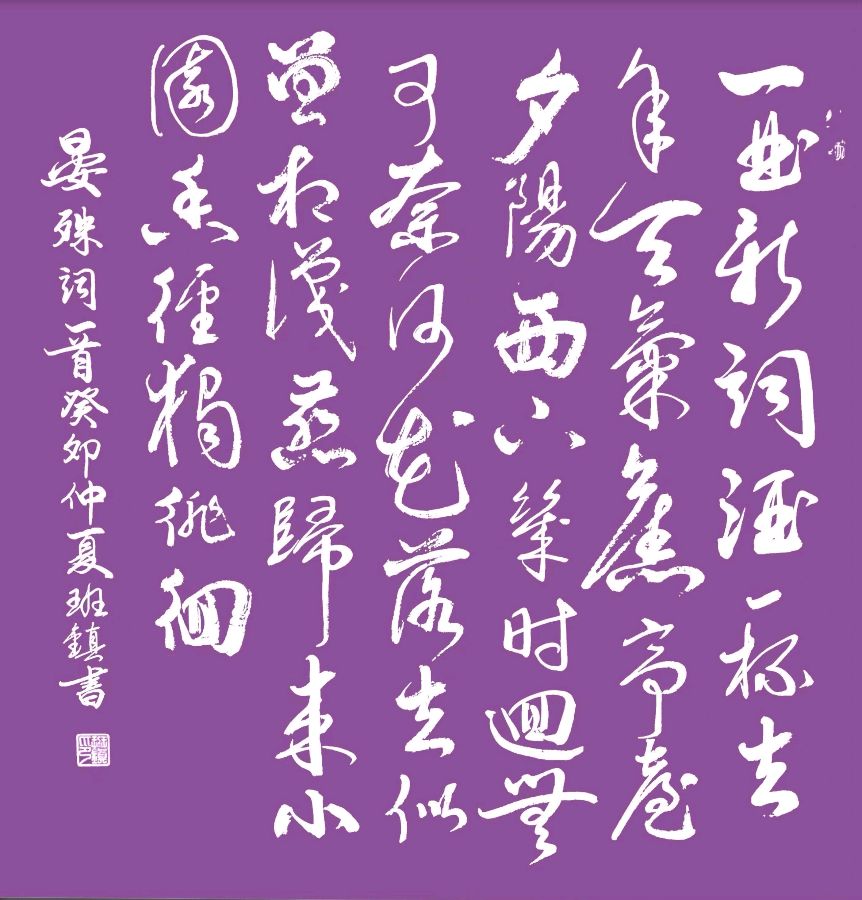 一曲新詞酒一杯去
年天氣舊亭臺
夕陽西下幾时迴無
可奈何花落去似
曾相識燕歸来小
園香徑獨徘徊
晏殊詞一首癸卯仲夏班鎮書